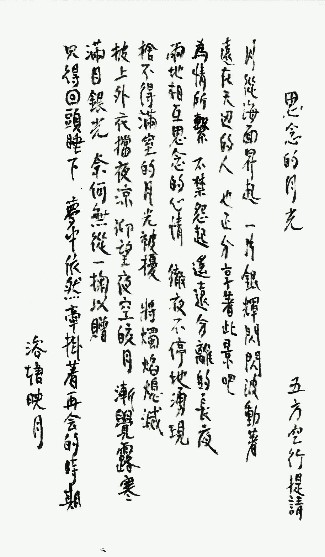 思念的月光
五方空行提請
月從海面昇起 一片銀輝閃閃波動著
遠在天边的人 也正分享著此景吧
為情所繫 不禁怨起 遙遠分離的長夜
兩地相互思念的心情 徹夜不停地湧現
捨不得滿室的月光被擾 將燭焰熄滅
披上外衣擋夜涼 仰望夜空皎月 漸覺露寒
滿目銀光 奈何無從一掬以贈
只得回頭睡下 夢中依然牽掛著再会的時期
洛塘映月